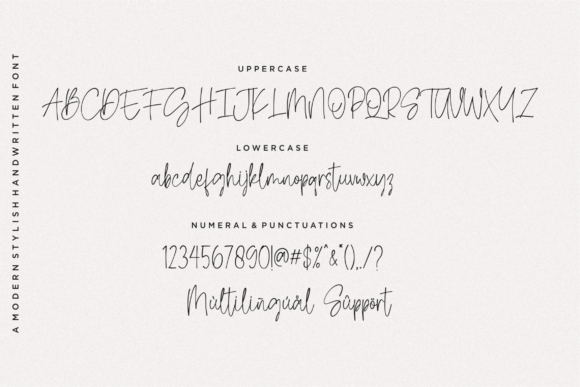 A MODERN STYLISH HANDWRITTEN FONT
UPPERCASE
ABCDEFGHIJKLMNOPQRSTUVWXYZ
LOWERCASE
abcdefghijklmnopqrstuvwxyz
NUMERAL & PUNCTUATIONS
1234567890!@#$%^&*(),./?
Múltilingúål Sûppört